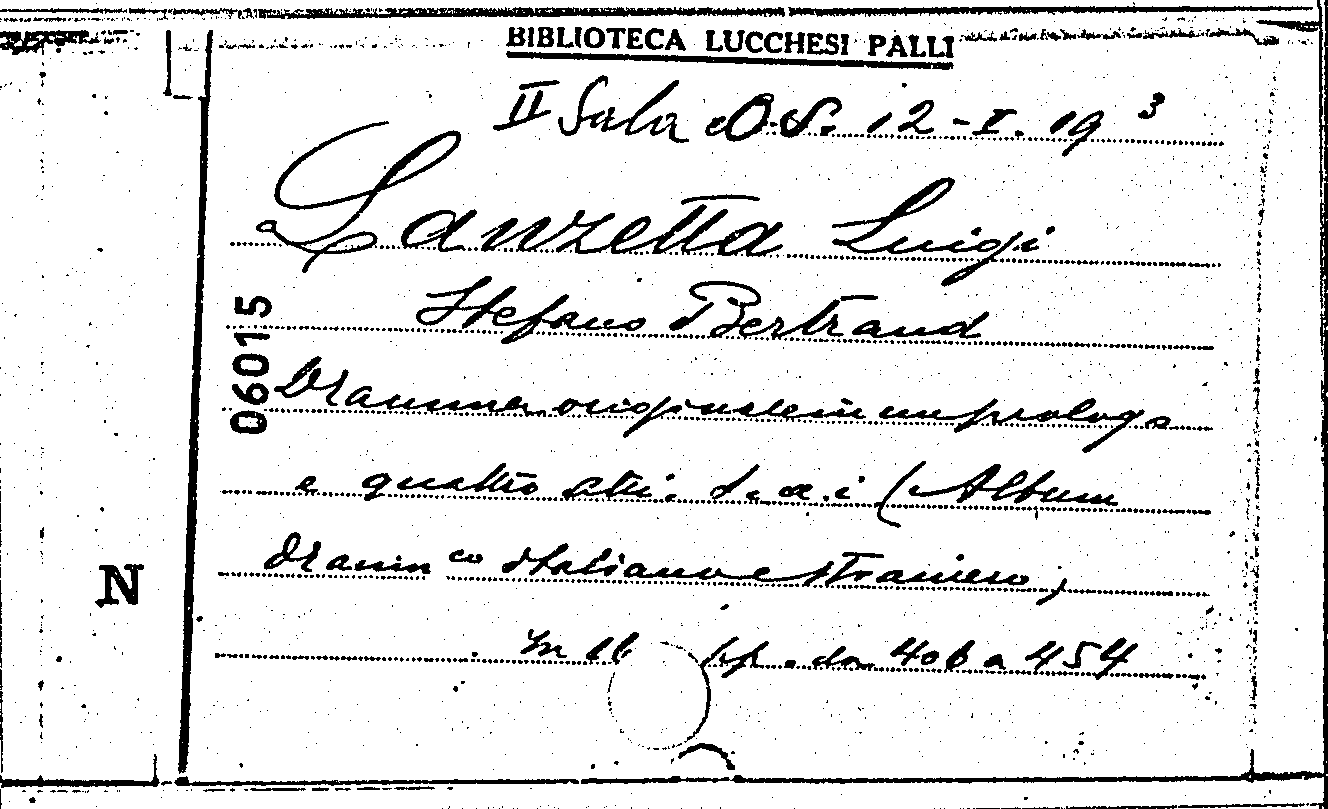 BIBLIOTECA LUCCHESI PALLI
II Sala O.S. 12-I. 19 3
Lanzetta Luigi
Stefano Bertrand
06015
Dramma originale in un prologo
e quattro atti. s.a.i (Album
dramm co italiano e straniero,
N
in 16 pp. da 406 a 454